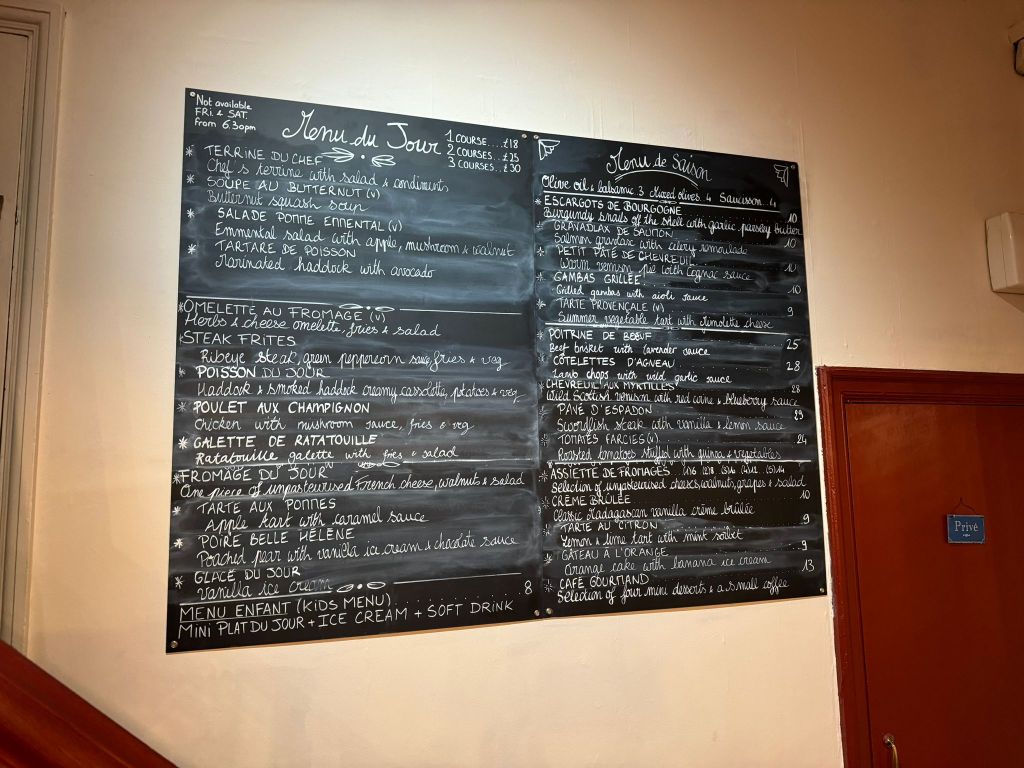 Not available
FRI. & SAT.
from 6.30pm
Menu du Jour
1 COURSE....£18
2 COURSES..£25
3 COURSES..£30
* TERRINE DU CHEF
Chef's terrine with salad & condiments
* SOUPE AU BUTTERNUT (V)
Butternut squash soup
* SALADE POMME EMMENTAL (V)
Emmental salad with apple, mushroom & walnut
* TARTARE DE POISSON
Marinated haddock with avocado
* OMELETTE AU FROMAGE (V)
Herbs & cheese omelette, fries & salad
* STEAK FRITES
Ribeye steak, green peppercorn sauce, fries & veg
* POISSON DU JOUR
Haddock & smoked haddock creamy cassolette, potatoes & veg
* POULET AUX CHAMPIGNON
Chicken with mushroom sauce, fries & veg
* GALETTE DE RATATOUILLE
Ratatouille galette with fries & salad
* FROMAGE DU JOUR
One piece of unpasteurised French cheese, walnuts & salad
* TARTE AUX POMMES
Apple tart with caramel sauce
* POIRE BELLE HÉLÈNE
Poached pear with vanilla ice cream & chocolate sauce
* GLACE DU JOUR
Vanilla ice cream
MENU ENFANT (KIDS MENU) 8
MINI PLAT DU JOUR + ICE CREAM + SOFT DRINK
Menu de Saison
Olive oil & balsamic 3 Mixed olives 4 Saucisson 4
* ESCARGOTS DE BOURGOGNE 10
Burgundy snails of the shell with garlic parsley butter
* GRAVADLAX DE SAUMON 10
Salmon gravlax with celery remoulade
* PETIT PÂTÉ DE CHEVREUIL 10
Warm venison pie with Cognac sauce
* GAMBAS GRILLÉE 10
Grilled gambas with aioli sauce
* TARTE PROVENÇALE (V) 9
Summer vegetable tart with cheese
* POITRINE DE BŒUF 25
Beef brisket with lavender sauce
* CÔTELETTES D'AGNEAU 28
Lamb chops with wild garlic sauce
* CHEVREUIL AUX MYRTILLES 28
Wild Scottish venison with red wine & blueberry sauce
* PAVÉ D'ESPADON 29
Swordfish steak with vanilla & lemon sauce
* TOMATES FARCIES (V) 24
Roasted tomatoes stuffed with quinoa & vegetables
* ASSIETTE DE FROMAGES
Selection of unpasteurised cheeses, walnuts, grapes & salad
* CRÈME BRÛLÉE 10
Classic Madagascan vanilla crème brûlée
* TARTE AU CITRON 9
Lemon & lime tart with mint sorbet
* GÂTEAU À L'ORANGE 9
Orange cake with banana ice cream
* CAFÉ GOURMAND 13
Selection of four mini desserts & a small coffee
Privé